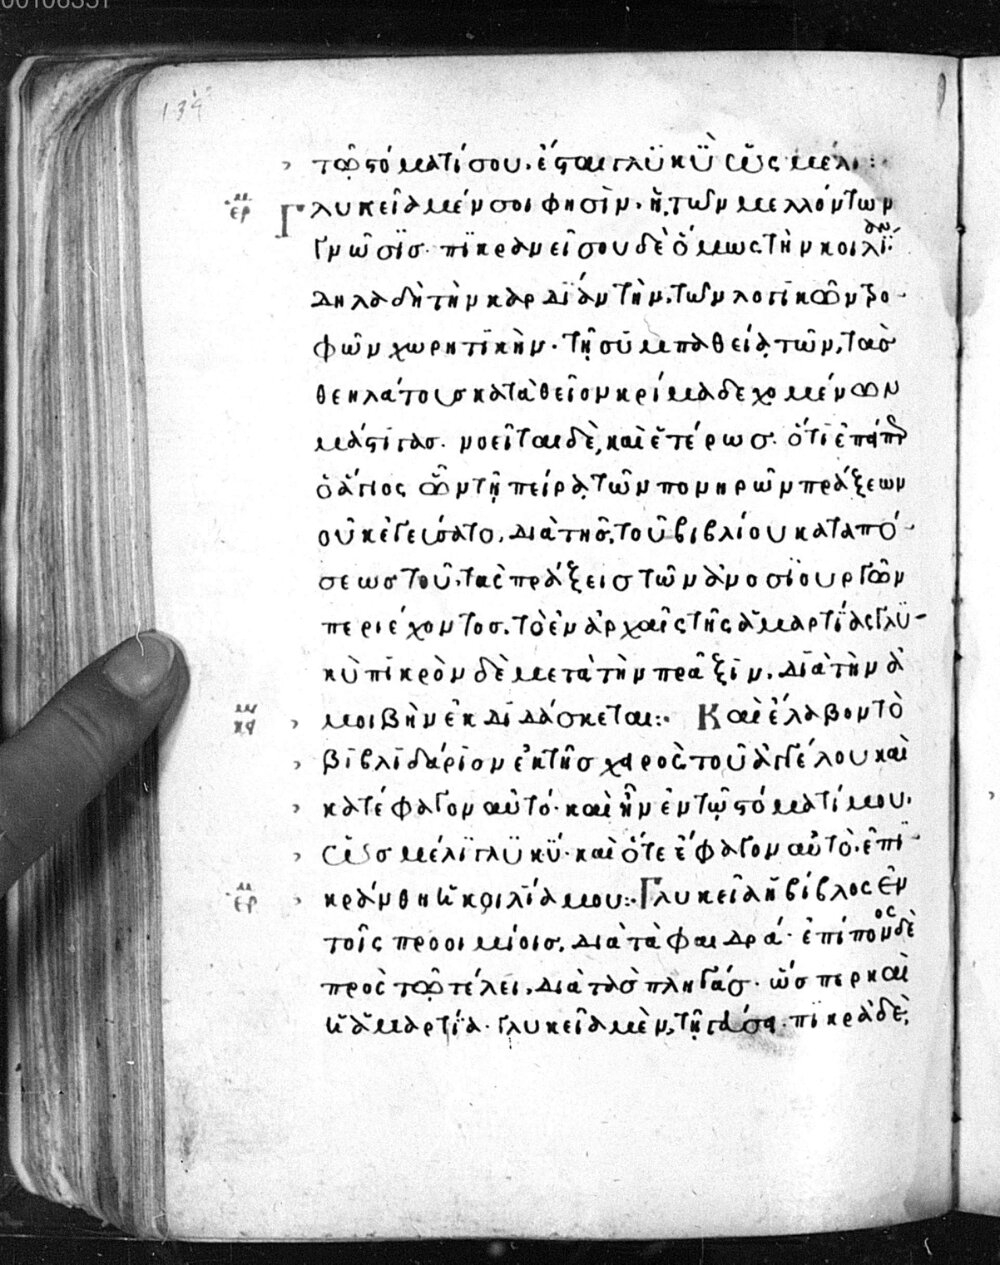 134
τῶ στόματί σου. ἔσται γλϋκὺ ὡς μέλι:
ἑρμ Γλυκεῖα μέν σοι φησὶν. ἡ τῶν μελλόντων
γνῶσϊς. πϊκρανεῖ σου δὲ ὅμως τὴν κοιλίαν:
δηλαδὴ τὴν καρδίαν τὴν, τῶν λογϊκῶν τρο-
φῶν χωρητϊκὴν. τῆ συμπαθεία τῶν, τὰσ
θεηλάτους κατὰ θεῖον κρίμα δεχομένων
μάστιγασ. νοεῖται δὲ, καὶ ἑτέρωσ. ὅτι ἐπείπερ
ὁ ἅγιος ὢν τῆ πείρα τῶν πονηρῶν πράξεων
οὐκ ἐγεύσατο, διὰ τῆσ, τοῦ βιβλίου καταπό-
σεωσ τοῦ, τὰς πράξεισ τῶν ἀνοσϊουργῶν
περιέχοντοσ. τὸ ἐν ἀρχαῖς τῆς ἁμαρτΐας γλϋ-
κὺ πϊκρὸν δὲ μετὰ τὴν πρᾶξϊν, διὰ τὴν ἀ
μοιβὴν ἐκδϊδάσκεται:. Καὶ ἔλαβον τὸ
βϊβλϊδάρϊον ἐκ τῆσ χειρὸς τοῦ ἀγγέλου καὶ
κατέφαγον αὐτό. καὶ ἦν ἐν τῶ στόματί μου.
ὡσ μέλϊ γλϋκϋ. καὶ ὅτε ἔφαγον αὐτὸ. ἐπϊ-
κράνθη ἡ κοιλϊα μου:. Γλυκεῖα ἡ βίβλος ἐν
τοῖς προοιμίοισ, διὰ τὰ φαιδρά. ἐπίπονος δὲ
πρὸς τῶ τέλει, διὰ τὰσ πληγάσ. ὥσπερ καὶ
ἡ ἁμαρτΐα. γλυκεῖα μὲν, τῆ γεύσει. πϊκρὰ δὲ,